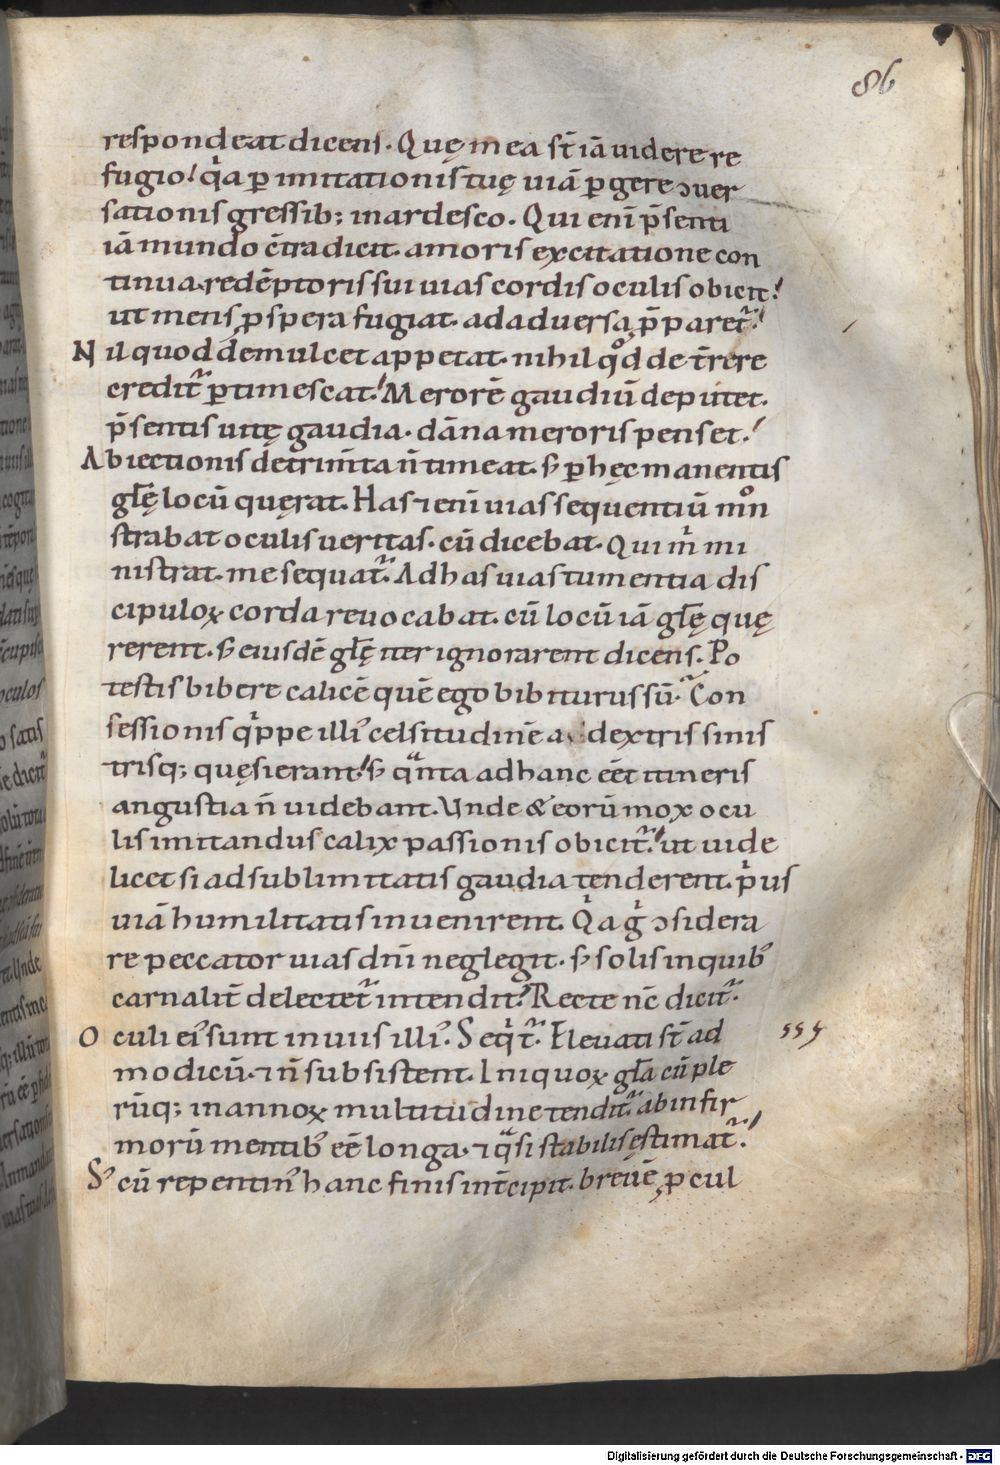 86
respondeat dicens. Quę mea st̄ iā uidere re
fugio! q̓a p̄ imitationis tuę uiā p̄gere ɔuer
sationis gressib; inardesco. Qui enī p̄senti
iā mundo c̄tradicit. amoris excitatione con
tinua. redēptoris sui uias cordis oculis obicit!
ut mens p̱spera fugiat. ad aduersa p̄paret᷑!
Nil quod demulcet appetat. nihil qͦd de t̄rere
credit᷑ p̄timescat! Merorē gaudiū deputet.
p̄sentis uitę gaudia. dāna meroris penset!
Abiectionis detrim̄ta n̄ timeat. s; p̄ hęc manentis
gl̄ę locū quęrat. Has ⁊enī uias sequentiū mͦn
strabat oculis ueritas. cū dicebat. Qui m̓ mi
nistrat. me sequat᷑. Ad has uias tumentia dis
cipuloꝝ corda reuocabat. cū locū iā gl̄ę quę
rerent. s; eiusdē gl̄ę iter ignorarent dicens. Po
testis bibere calicē quē ego bibiturus sū. Con
sessionis q̓ppe illi᾽ celsitudinē a dextris sinis
trisq; quęsierant! s; qͣnta ad hanc eēt itineris
angustia n̄ uidebant. Unde & eorū mox ocu
lis imitandus calix passionis obicit᷑! ut uide
licet si ad sublimitatis gaudia tenderent. p̓us
uiā humilitatis inuenirent. Q̓a g̓ ɔsidera
re peccator uias dn̄i neglegit. s; solis inquib᾽
carnalit̄ delectet᷑ intendit! Recte nc̄ dicit᷑.
Oculi ei᾽ sunt in uiis illi᾽. Seq̓t᷑. Eleuati st̄ ad
555
modicū. ⁊ n̄ subsistent. Iniquoꝝ gl̄a cū ple
rūq; in annoꝝ multitudine tendit᷑. ab infir
morū mentib᾽ eē longa. ⁊ qͣsi stabilis ęstimat᷑!
S; cū repentin᾽ hanc finis int̄cipit. breuē p̱cul
Digitalisierung gefördert durch die Deutsche Forschungsgemeinschaft - DFG